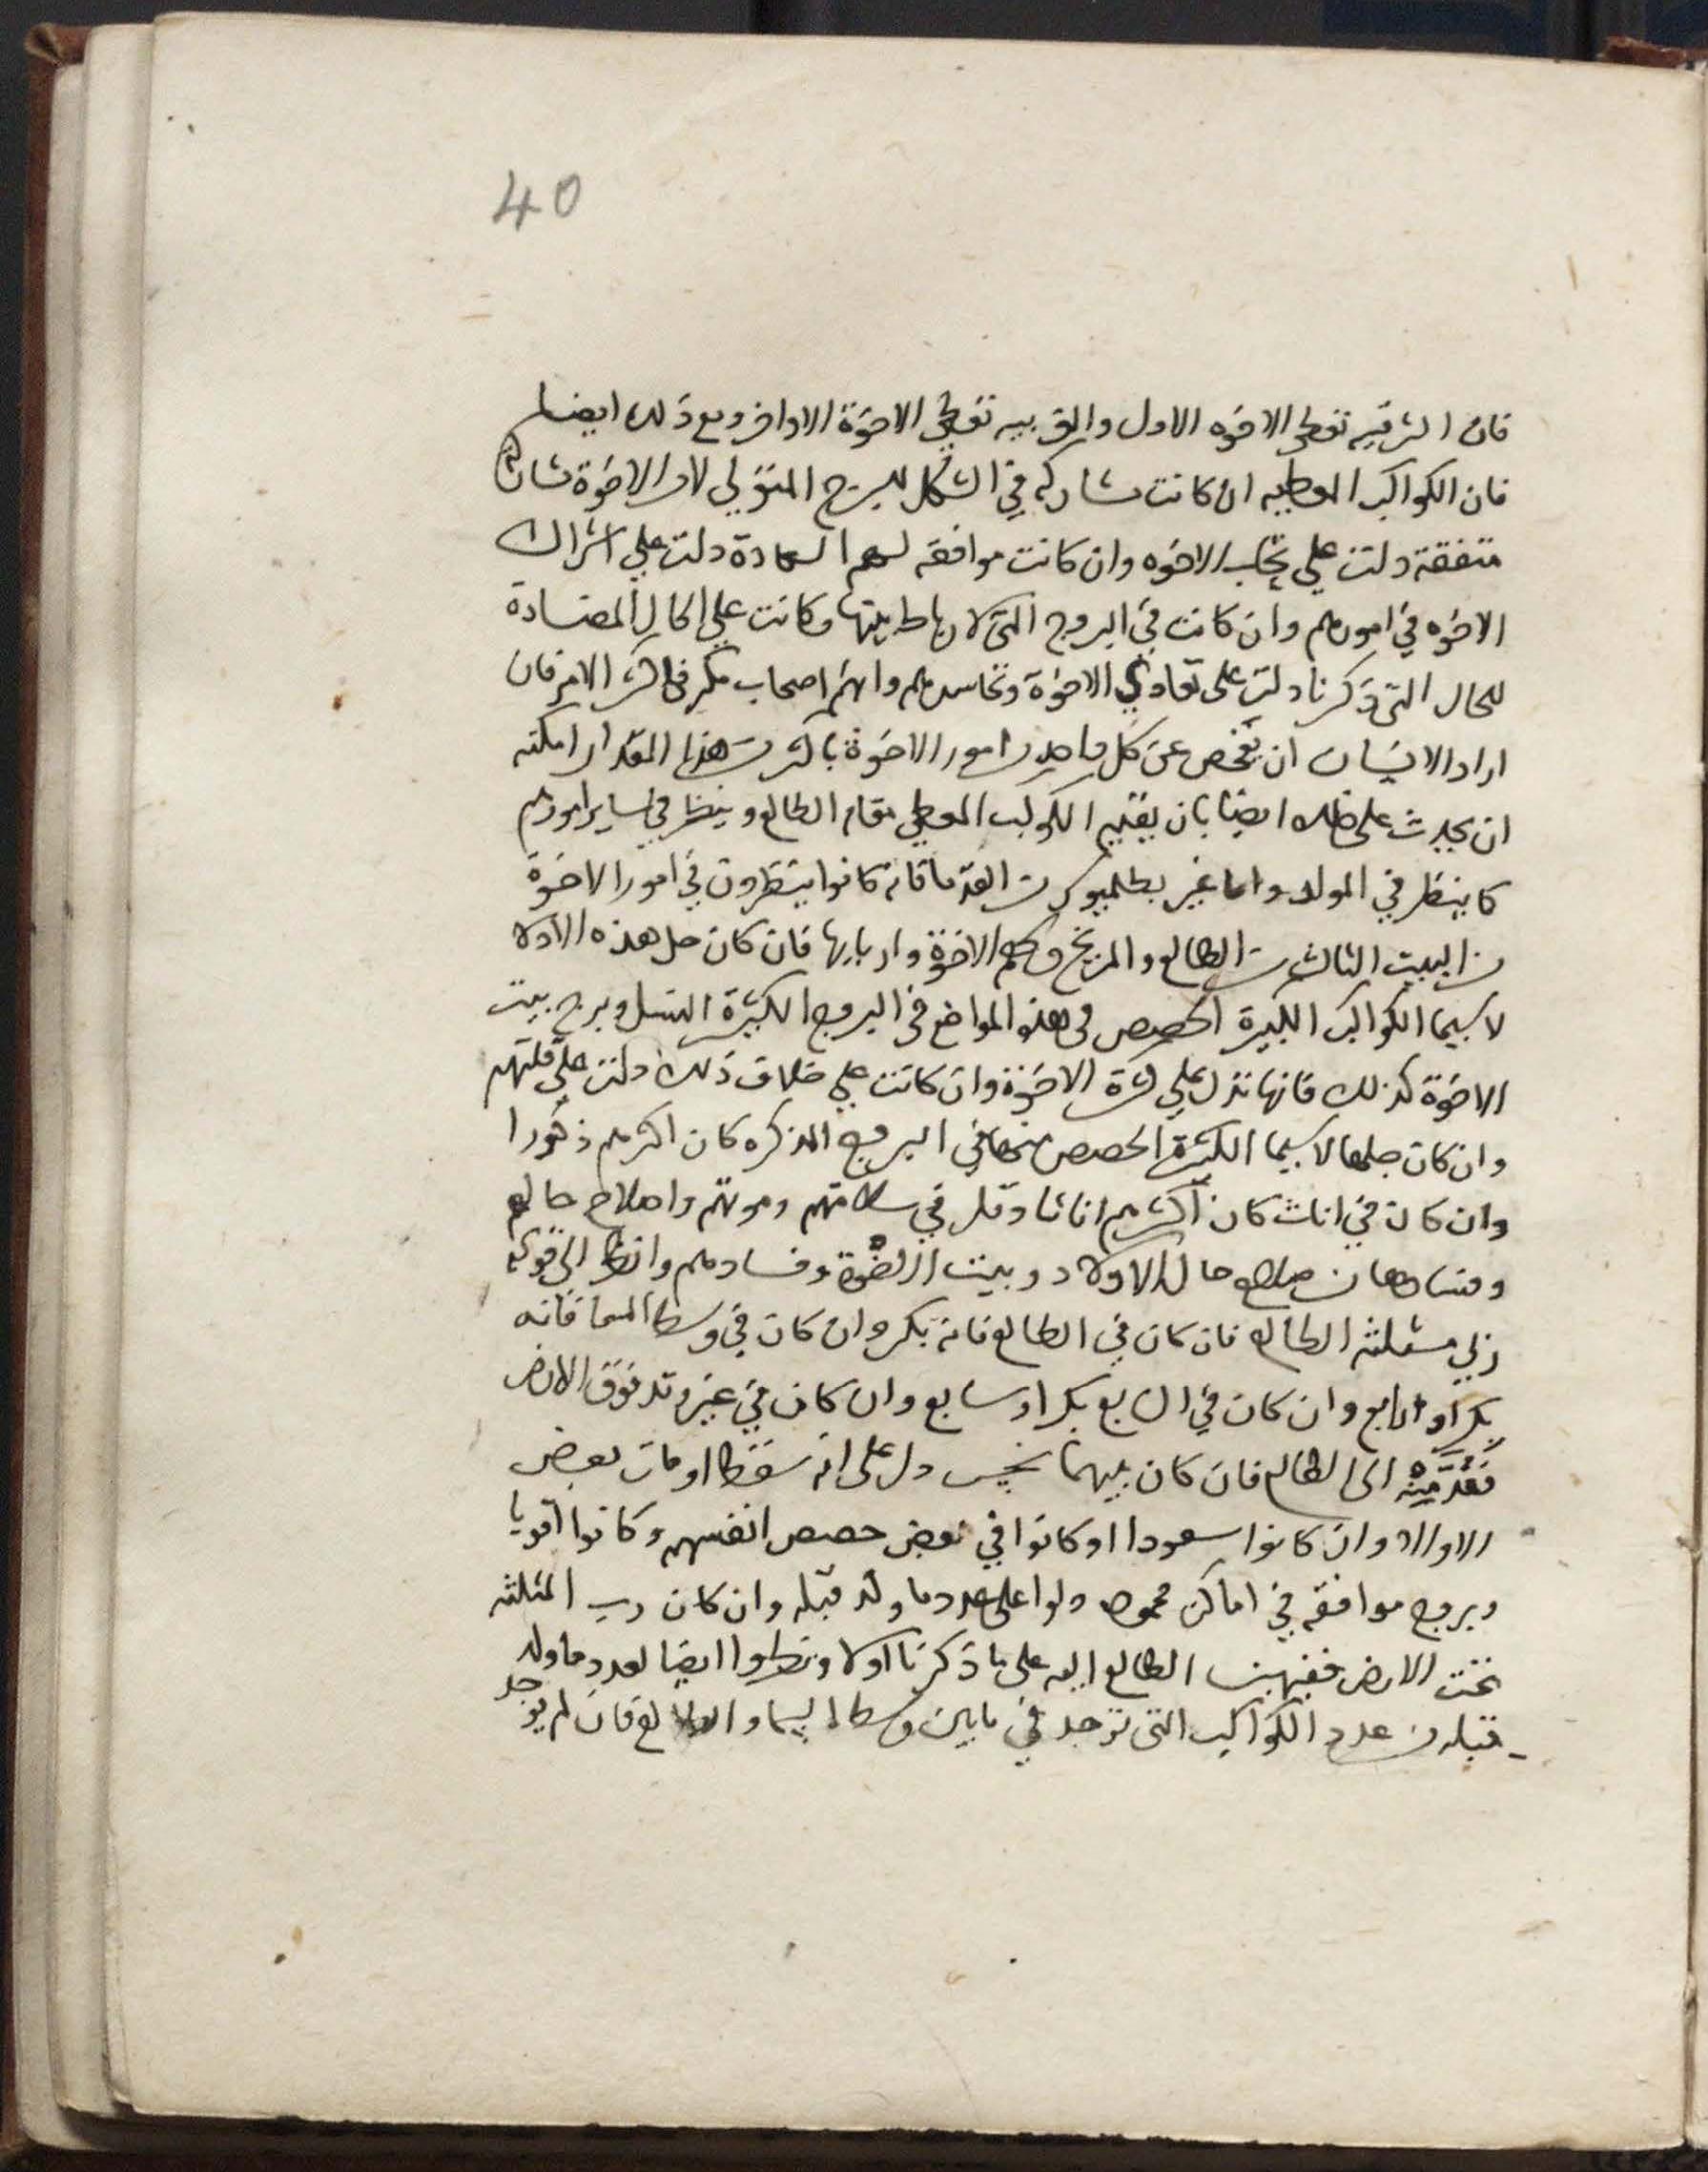 40
فان الشرقيه تعطي الاخوه الاول والغربيه تعطي الاخوة الاواخر ومع ذلك ايضا
فان الكواكب المعطيه ان كانت مشاركه في الشكل للبرج المتولي لامر الاخوة مشاركة
متفقة دلت علي تحاب الاخوه وان كانت موافقه لسهم السعادة دلت علي اشتراك
الاخوه في امورهم وان كانت في البروج التي لا رباط بينها وكانت علي الحال المضادة
للحال التي ذكرنا دلت علي تعادي الاخوة وتحاسدهم وانهم اصحاب مكر في اكثر الامر فان
اراد الانسان ان يفحص عن كل واحد من امور الاخوة باكثر من هذا المقدار امكنه
ان يحدث علي ذلك ايضا بان يقيم الكوكب المعطي مقام الطالع وينظر في ساير امورهم
كما ينظر في المولد واما غير بطلميوس من القدما فانه كانوا ينظرون في امور الاخوة
من البيت الثالث من الطالع والمريخ وسهم الاخوة واربابها فان كان جل هذه الادلا
لا سيما الكواكب الكثيرة الحصص في هذه المواضع في البروج الكثيرة النسل وبرج بيت
الاخوة كذلك فانها تدل علي كثرة الاخوة وان كانت علي خلاف ذلك دلت علي قلتهم
وان كان جلها لا سيما الكثيرة الحصص منها في البروج المذكره كان اكثرهم ذكورا
وان كان في اناث كان اكثرهم اناثا وقل في سلامتهم وموتهم واصلاح حالهم
وفسادها من صلاح حال الاولاد وبيت الاخوة وفسادهم وانظر الي قوة
رب مثلثة الطالع فان كان في الطالع فانه بكر وان كان في وسط السما فانه
بكر او رابع وان كان في السابع بكر او سابع وان كان في غير وتد فوق الارض
فعد منه الي الطالع فان كان بينهما نحس دل علي انه سقط او مات بعض
الاولاد وان كانوا سعودا او كانوا في بعض حصص انفسهم وكانوا اقويا
وبروج موافقه في اماكن محموده دلوا علي عدد ما ولد قبله وان كان رب المثلثه
تحت الارض فعد من الطالع اليه علي ما ذكرنا اولا ونظروا ايضا لعدد ما ولد
قبله من عدد الكواكب التي توجد في ما بين وسط السما والطالع فان لم يوجد